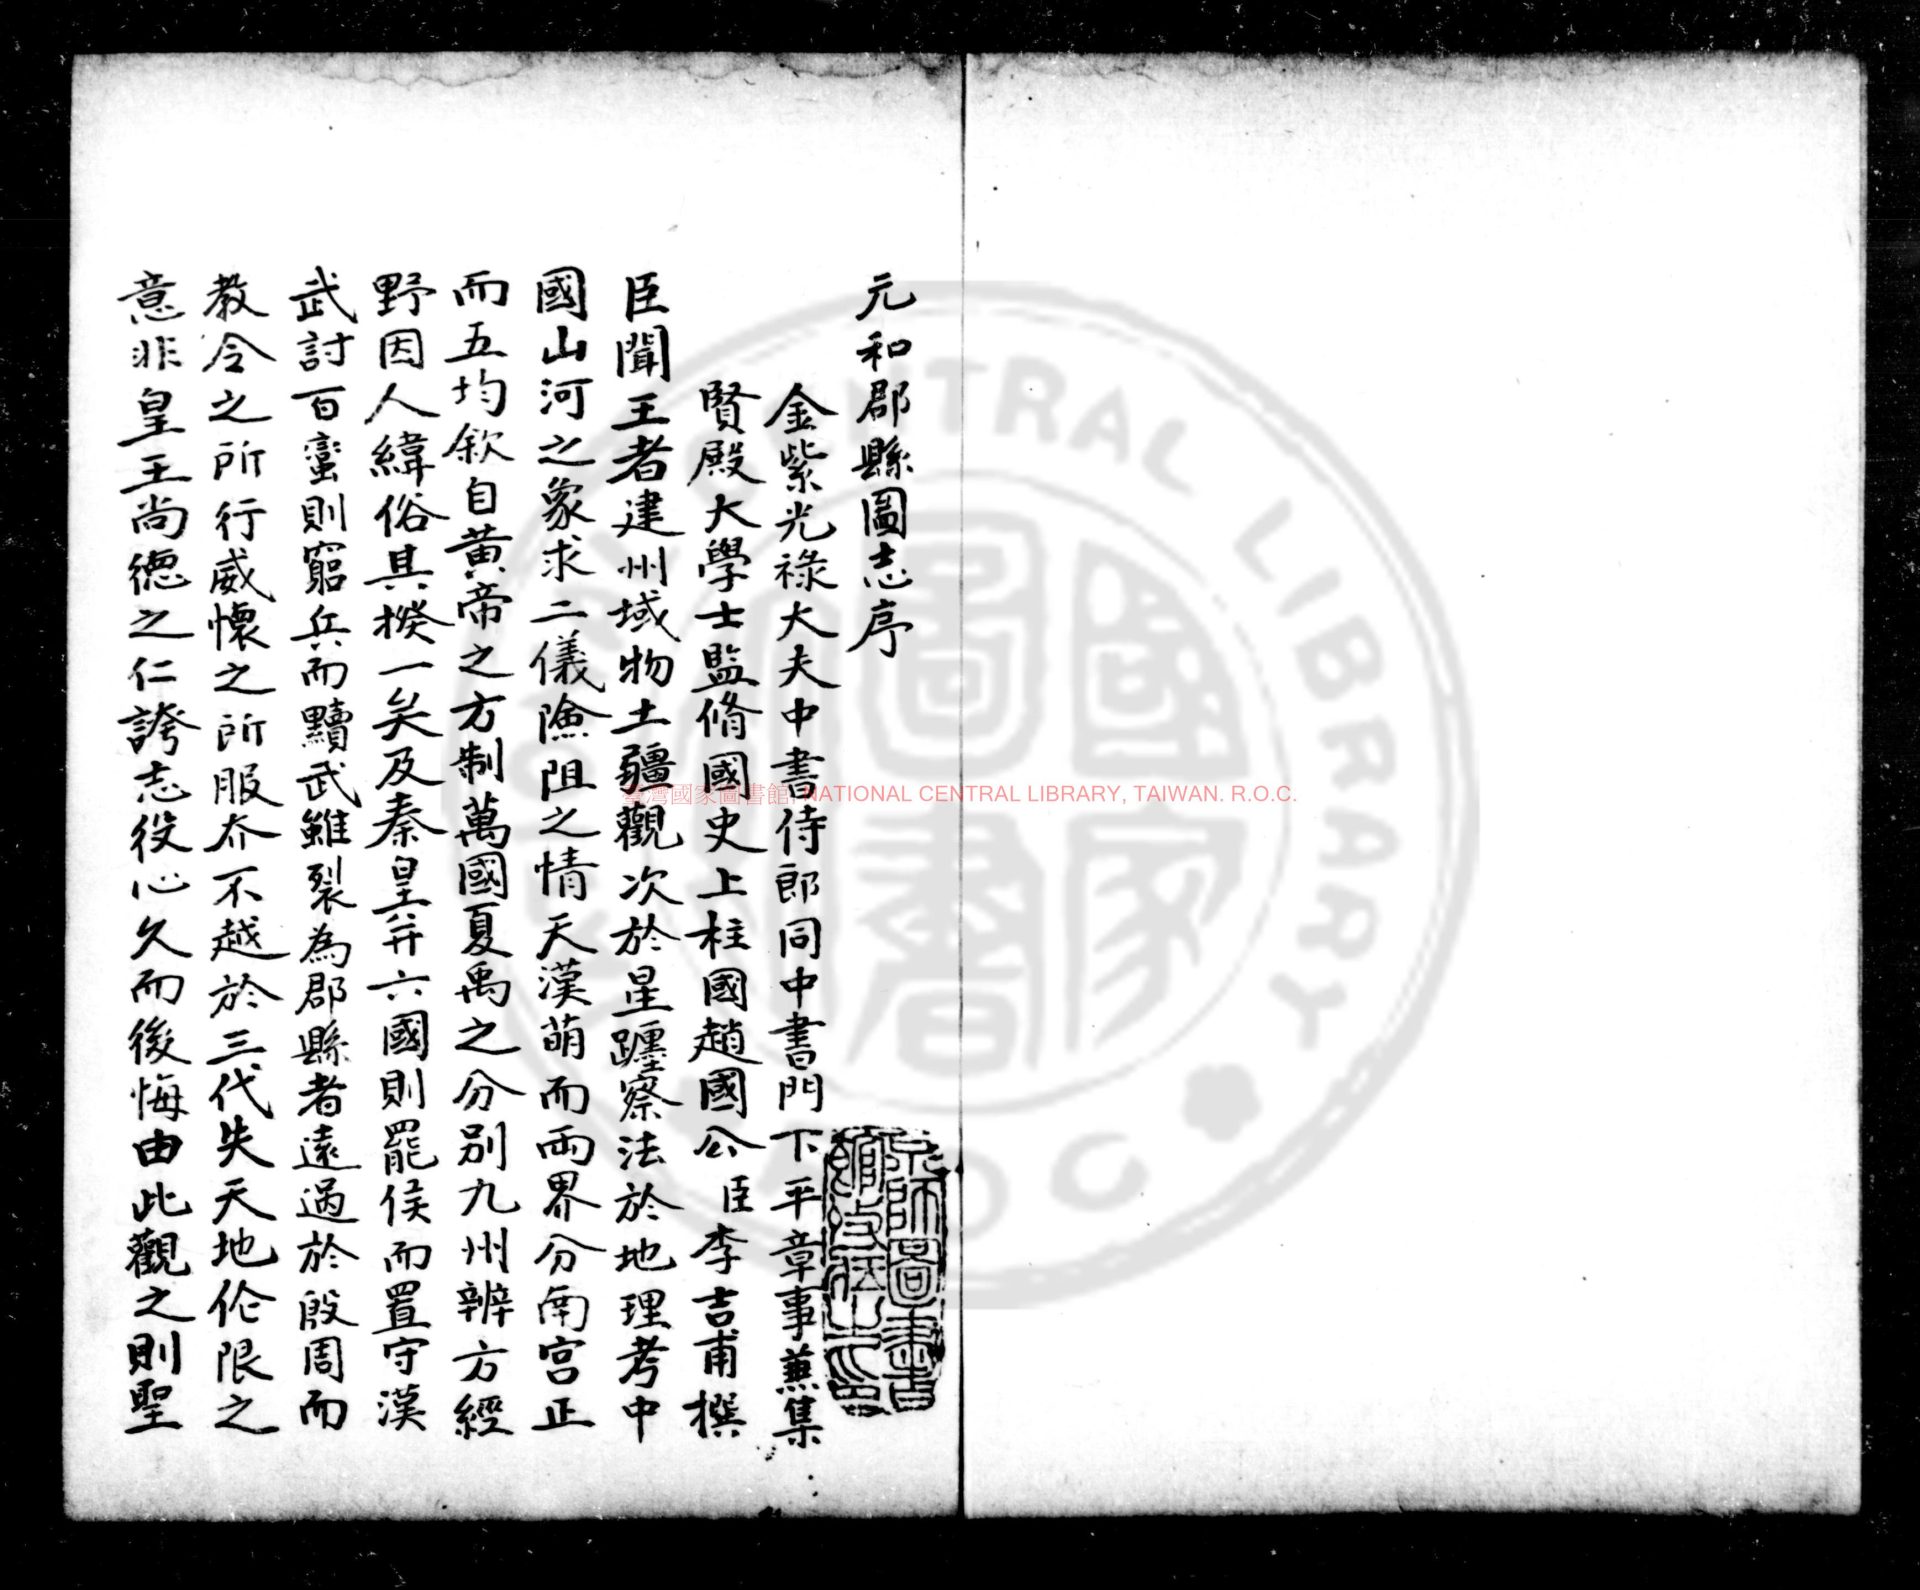 元和郡縣圖志序
金紫光祿大夫中書侍郎同中書門下平章事兼集
賢殿大學士監脩國史上柱國趙國公臣李吉甫撰
臣聞王者建州域物土疆觀次於星躔察法於地理考中
國山河之象求二儀險阻之情天漢萌而兩界分南宮正
而五均敘自黃帝之方制萬國夏禹之分別九州辨方經
野因人緯俗其揆一矣及秦皇并六國則罷侯而置守漢
武討百蠻則窮兵而黷武雖裂為郡縣者遠過於殷周而
教令之所行威懷之所服亦不越於三代失天地作限之
意非皇王尚德之仁誇志役心久而後悔由此觀之則聖
京師圖書館收藏之印
臺灣國家圖書館, NATIONAL CENTRAL LIBRARY, TAIWAN. R.O.C.
國家圖書
CENTRAL LIBRARY